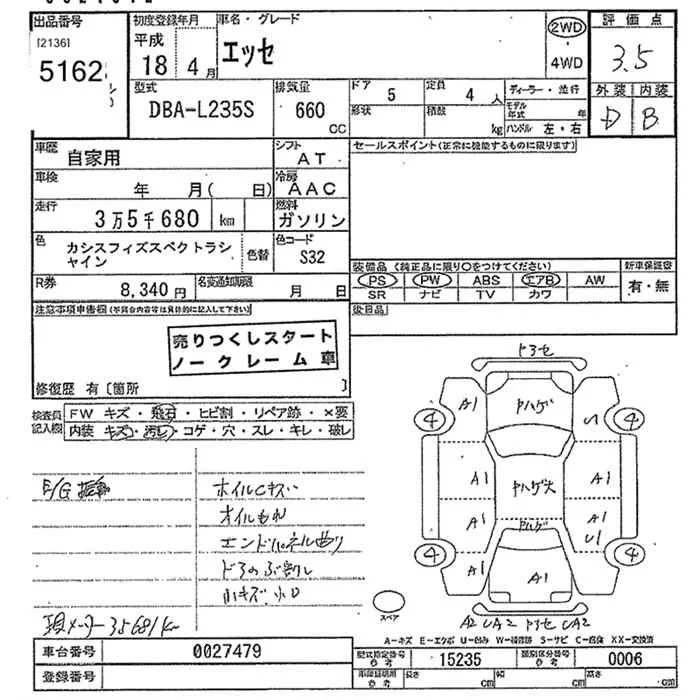 出品番号
[21361
5162
初度登録年月
平成
18 年 4 月
車名・グレード
エッセ
2WD
4WD
評価点
3.5
外装 内装
D B
型式
DBA-L235S
排気量
660 CC
ドア 5
定員 4 人
形状
積載 kg
ディーラー・並行
モデル年式 年
ハンドル 左・右
車歴
自家用
シフト
AT
車検
年 月( 日)
冷房
AAC
走行
3万5千680 km
燃料
ガソリン
色
カシスフィズスペクトラシャイン
色替
色コード
S32
R券
8,340円
名変通知期限
月 日
セールスポイント(正常に機能するものに限ります)
装備品(純正品に限り○をつけてください)
PS PW ABS エアB AW
SR ナビ TV カワ
新車保証書
有・無
後日品
注意事項申告欄(不具合内容等は具体的に記入して下さい)
売りつくしスタート
ノークレーム車
修復歴 有〔箇所 〕
検査員記入欄
FW キズ・飛石・ヒビ割・リペア跡・×要
内装 キズ・汚れ・コゲ・穴・スレ・キレ・破レ
E/G
ホイルCキズ
オイルもれ
エンドパネル曲り
ドアのぶ割レ
小キズ 小U
現メーター 35681km
ドアセ
A1
ヤハゲ
U
4
4
A1
ヤハゲ大
A1
A1
ヤハゲ
A1
U1
4
4
A1
A1
スペア
A2 UA2 ドアセ UA2
A-キズ E-エクボ U-凹み W-補修跡 S-サビ C-腐蝕 XX-交換済
車台番号
0027479
登録番号
型式指定番号
参考
15235
類別区分番号
参考
0006
車検証明用
参考
長さ cm
巾 cm
高さ cm